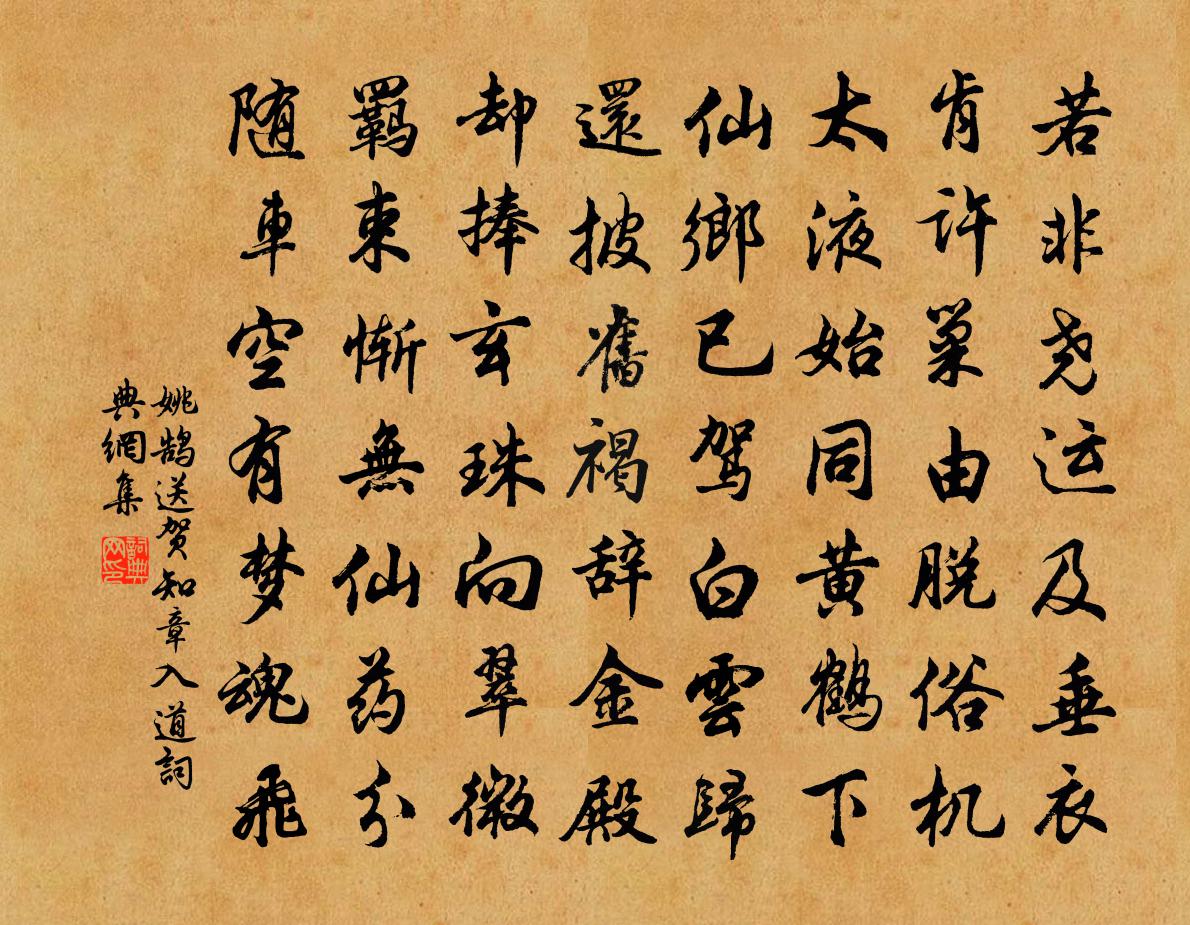 若非尧运及垂衣
肯许巢由脱俗机
太液始同黄鹤下
仙鄉已驾白雲歸
還披舊褐辞金殿
却捧玄珠向翠微
羁束惭無仙药分
随車空有梦魂飛
姚鹄送贺知章入道詞
典網集
詞典
网印